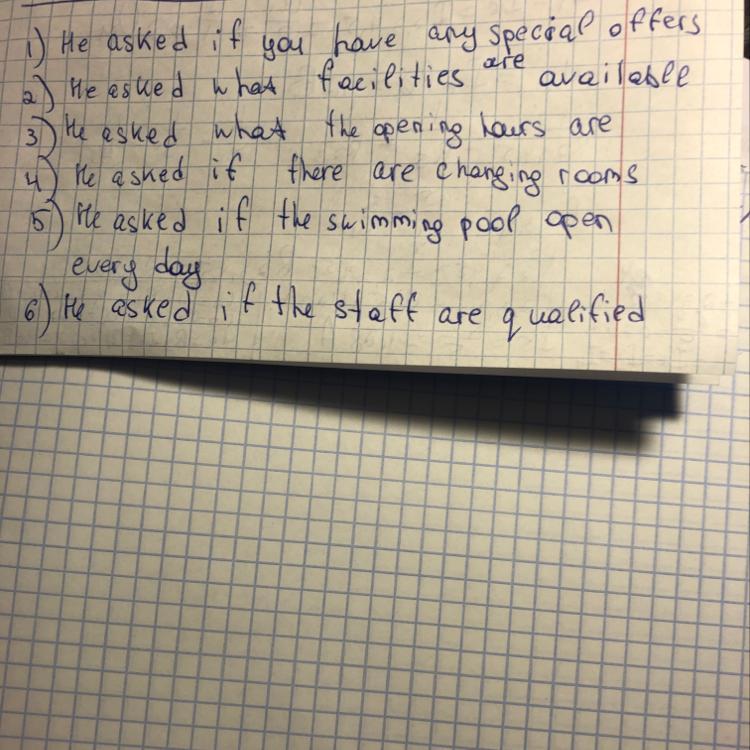 1) He asked if you have any special offers
2) He asked what facilities are available
3) He asked what the opening hours are
4) He asked if there are changing rooms
5) He asked if the swimming pool open
every day
6) He asked if the staff are qualified